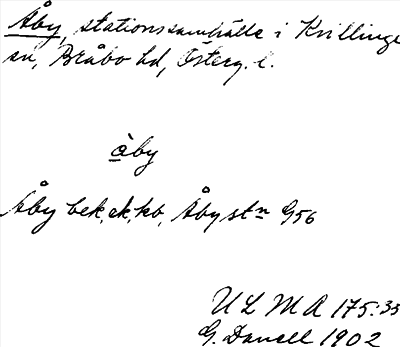 Åby, stationssamhälle i Kvillinge
sn, Bråbo hd, Österg. l.
àby
Åby bek. ek. kb, Åby stn G56
ULMA 175:35
G. Danell 1902